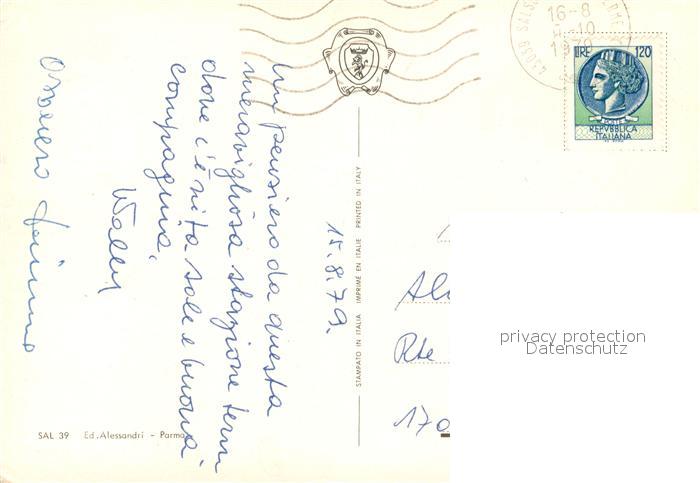 Un pensiero da questa
meravigliosa stazione term.
dove c'è vita sole e buona
compagnia.
Wally
15.8.79.
STAMPATO IN ITALIA IMPRIMÉ EN ITALIE PRINTED IN ITALY
SAL 39 Ed. Alessandri - Parma
16-8
-10
1979
43039 SALSO
LIRE 120
POSTE
REPVBBLICA
ITALIANA
Rte
170
privacy protection
Datenschutz